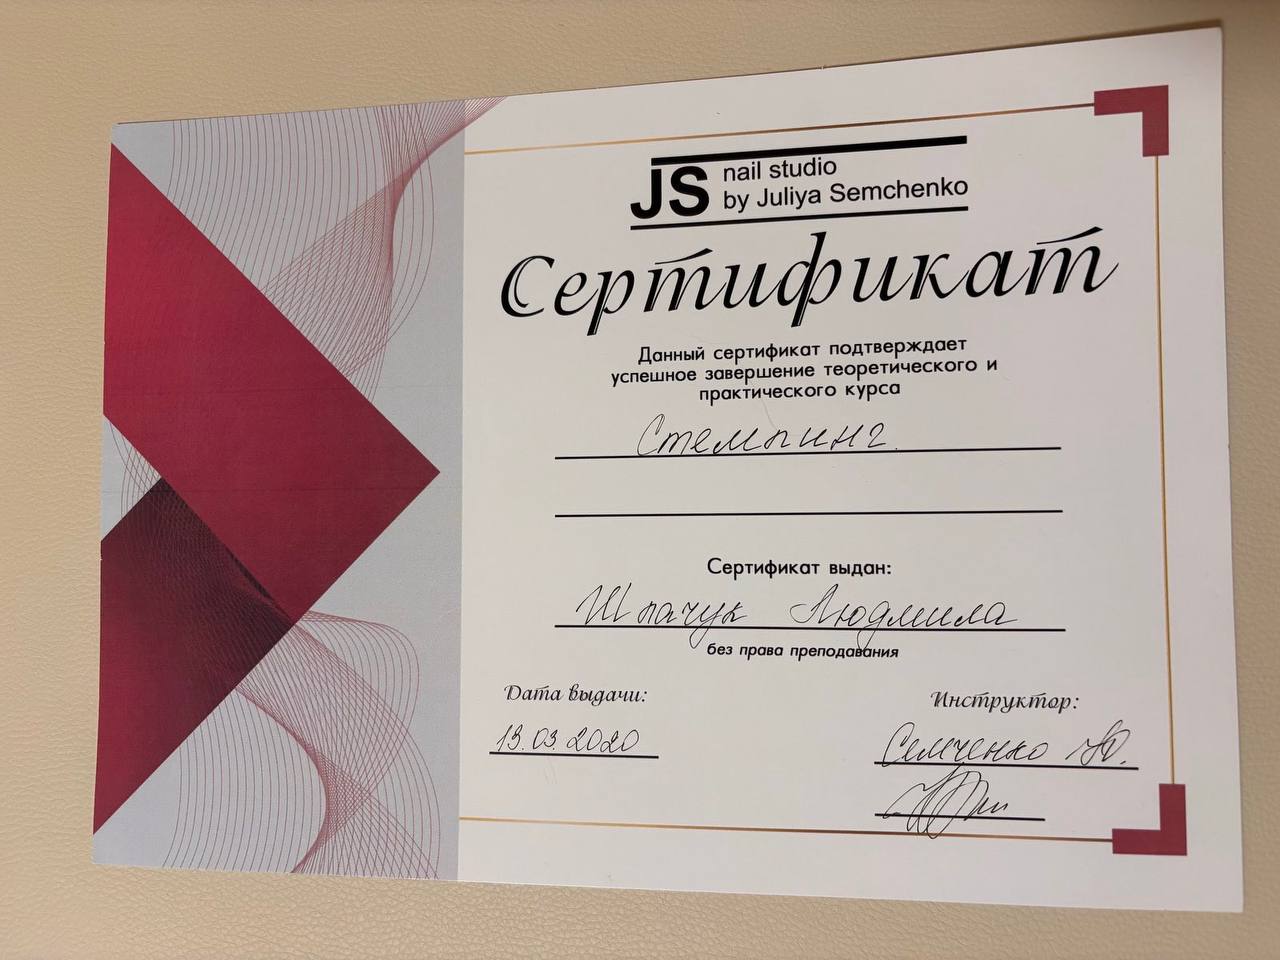 JS nail studio
by Juliya Semchenko
Сертификат
Данный сертификат подтверждает
успешное завершение теоретического и
практического курса
Стемпинг.
Сертификат выдан:
Шпачук Людмила
без права преподавания
Дата выдачи:
Инструктор:
13.03.2020
Семченко Ю.